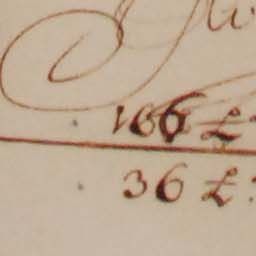 166 £
36 £